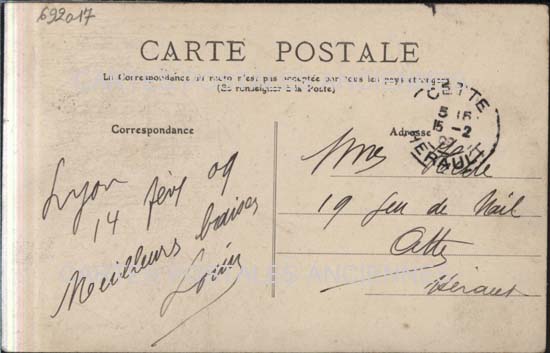 692017
CARTE POSTALE
La Correspondance au recto n'est pas acceptée par tous les pays étrangers
(Se renseigner à la Poste)
Correspondance
Adresse
CETTE
15-2
HERAULT
Lyon
14 févr 09
Meilleurs baisers
Louis
19 Jeu de Mail
Cette
Hérault
CARTES POSTALES ANCIENNES